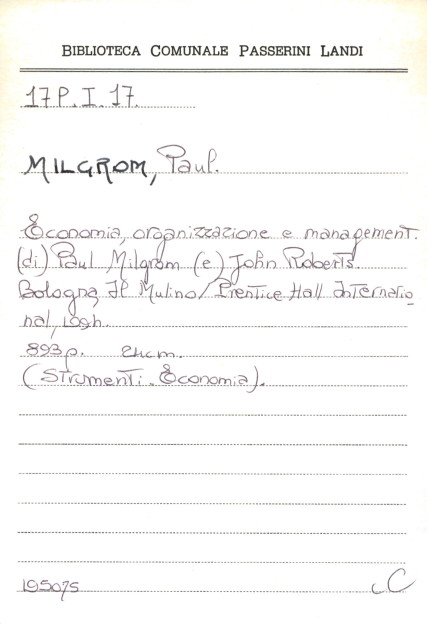 BIBLIOTECA COMUNALE PASSERINI LANDI
17 P. I. 17.
MILGROM, Paul.
Economia, organizzazione e management.
(di) Paul Milgrom (e) John Roberts.
Bologna, Il Mulino/Prentice Hall Internatio
nal, 1994.
893 p. 24 cm.
(Strumenti. Economia).
195075 C